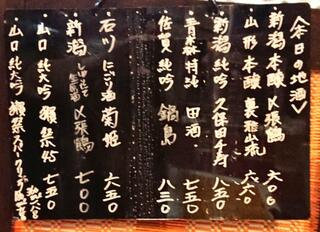 〈本日の地酒〉
新潟 本醸 〆張鶴 六〇〇
山形 本醸 裏雅山流 六六〇
新潟 純吟 久保田千寿 八五〇
青森 特純 田酒 七五〇
佐賀 純吟 鍋島 八三〇
石川 にごり酒 菊姫 六五〇
新潟 しぼりたて生原酒 〆張鶴 七〇〇
山口 純大吟 獺祭45 七五〇
山口 純大吟 獺祭スパークリング